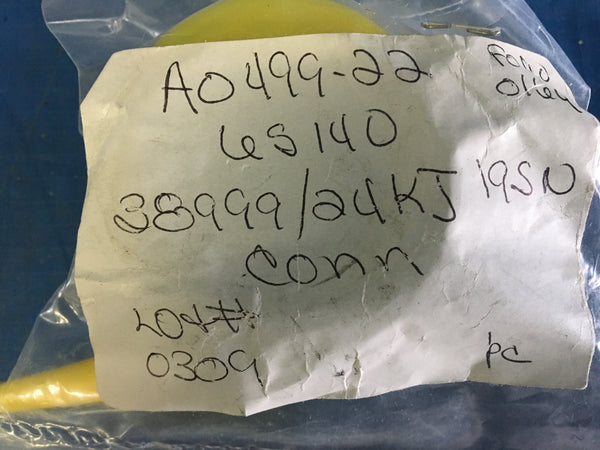 A0499-22
6S140
38999/24KJ 19SN
Conn
Lot#
0309
pc